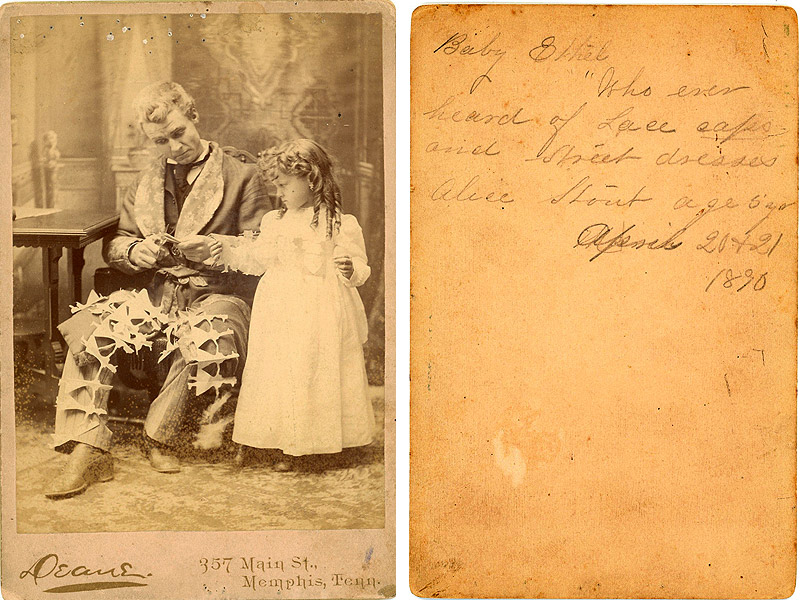 Deane.
357 Main St.,
Memphis, Tenn.
Baby Ethel
"Who ever
heard of Lace caps
and street dresses
Alice Stout age 5 yr
April 20 & 21
1890